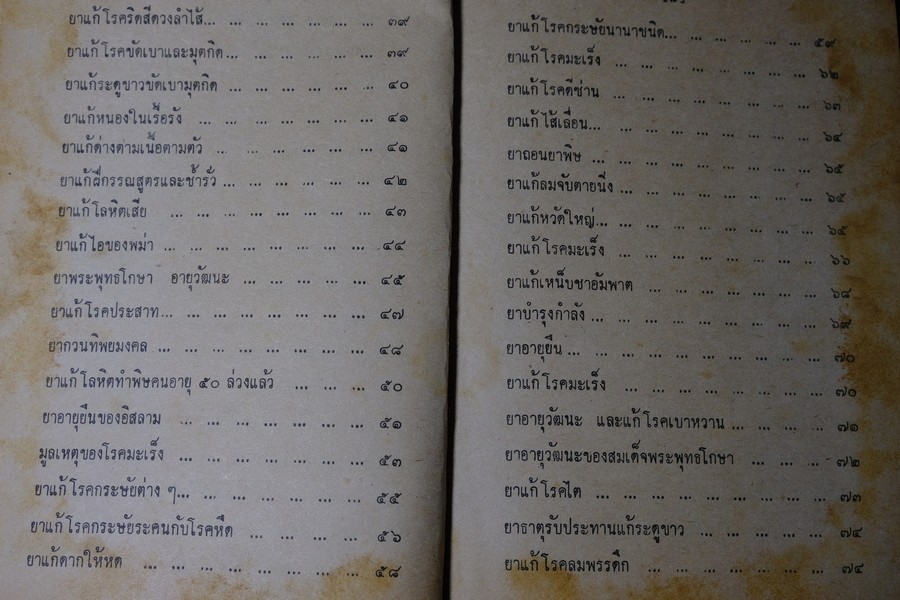 ยาแก้โรคริดสีดวงลำไส้... ... ... ... ... ... ๓๙
ยาแก้โรคขัดเบาและมุตกิด... ... ... ... ... ๓๙
ยาแก้ระดูขาวขัดเบามุตกิด ... ... ... ... ... ๔๐
ยาแก้หนองในเรื้อรัง ... ... ... ... ... ... ๔๑
ยาแก้ด่างตามเนื้อตามตัว ... ... ... ... ... ๔๑
ยาแก้ฝีกรรณสูตรและช้ำรั่ว ... ... ... ... ... ๔๒
ยาแก้โลหิตเสีย ... ... ... ... ... ... ... ๔๓
ยาแก้ไอของพม่า ... ... ... ... ... ... ... ๔๔
ยาพระพุทธโกษา อายุวัฒนะ ... ... ... ... ๔๕
ยาแก้โรคประสาท... ... ... ... ... ... ... ๔๗
ยากวนทิพยมงคล ... ... ... ... ... ... ๔๘
ยาแก้โลหิตทำพิษคนอายุ ๕๐ ล่วงแล้ว ... ... ... ๕๐
ยาอายุยืนของอิสลาม ... ... ... ... ... ... ๕๑
มูลเหตุของโรคมะเร็ง ... ... ... ... ... ... ๕๓
ยาแก้โรคกระษัยต่าง ๆ... ... ... ... ... ... ๕๕
ยาแก้โรคกระษัยระคนกับโรคหืด ... ... ... ... ๕๖
ยาแก้ดากให้หด ... ... ... ... ... ... ... ๕๘
ยาแก้โรคกระษัยนานาชนิด... ... ... ... ... ... ๕๙
ยาแก้โรคมะเร็ง ... ... ... ... ... ... ... ๖๒
ยาแก้โรคดีซ่าน ... ... ... ... ... ... ... ๖๓
ยาแก้ไส้เลื่อน... ... ... ... ... ... ... ... ๖๔
ยาถอนยาพิษ ... ... ... ... ... ... ... ... ๖๕
ยาแก้ลมจับตายนิ่ง ... ... ... ... ... ... ... ๖๕
ยาแก้หวัดใหญ่... ... ... ... ... ... ... ... ๖๕
ยาแก้โรคมะเร็ง ... ... ... ... ... ... ... ๖๖
ยาแก้เหน็บชาอัมพาต ... ... ... ... ... ... ๖๘
ยาบำรุงกำลัง ... ... ... ... ... ... ... ... ๖๙
ยาอายุยืน ... ... ... ... ... ... ... ... ๗๐
ยาแก้โรคมะเร็ง ... ... ... ... ... ... ... ๗๐
ยาอายุวัฒนะ และแก้โรคเบาหวาน ... ... ... ... ๗๑
ยาอายุวัฒนะของสมเด็จพระพุทธโกษา ... ... ... ๗๒
ยาแก้โรคไต ... ... ... ... ... ... ... ... ๗๓
ยาธาตุรับประทานแก้ระดูขาว ... ... ... ... ... ๗๔
ยาแก้โรคลมพรรดึก ... ... ... ... ... ... ๗๔